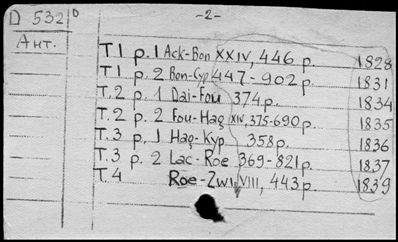 D 532/D
-2-
Ант.
T1 p. 1 Ack-Bon XXIV, 446 p. 1828
T1 p. 2 Bon-Cyp 447-902 p. 1831
T.2 p. 1 Dai-Fou 374 p. 1834
T.2 p. 2 Fou-Hag XIV, 375-690 p. 1835
T.3 p. 1 Hag-Kyp 358 p. 1836
T.3 p. 2 Lac-Roe 369-821 p. 1837
T.4 Roe-Zwi, VIII, 443 p. 1839